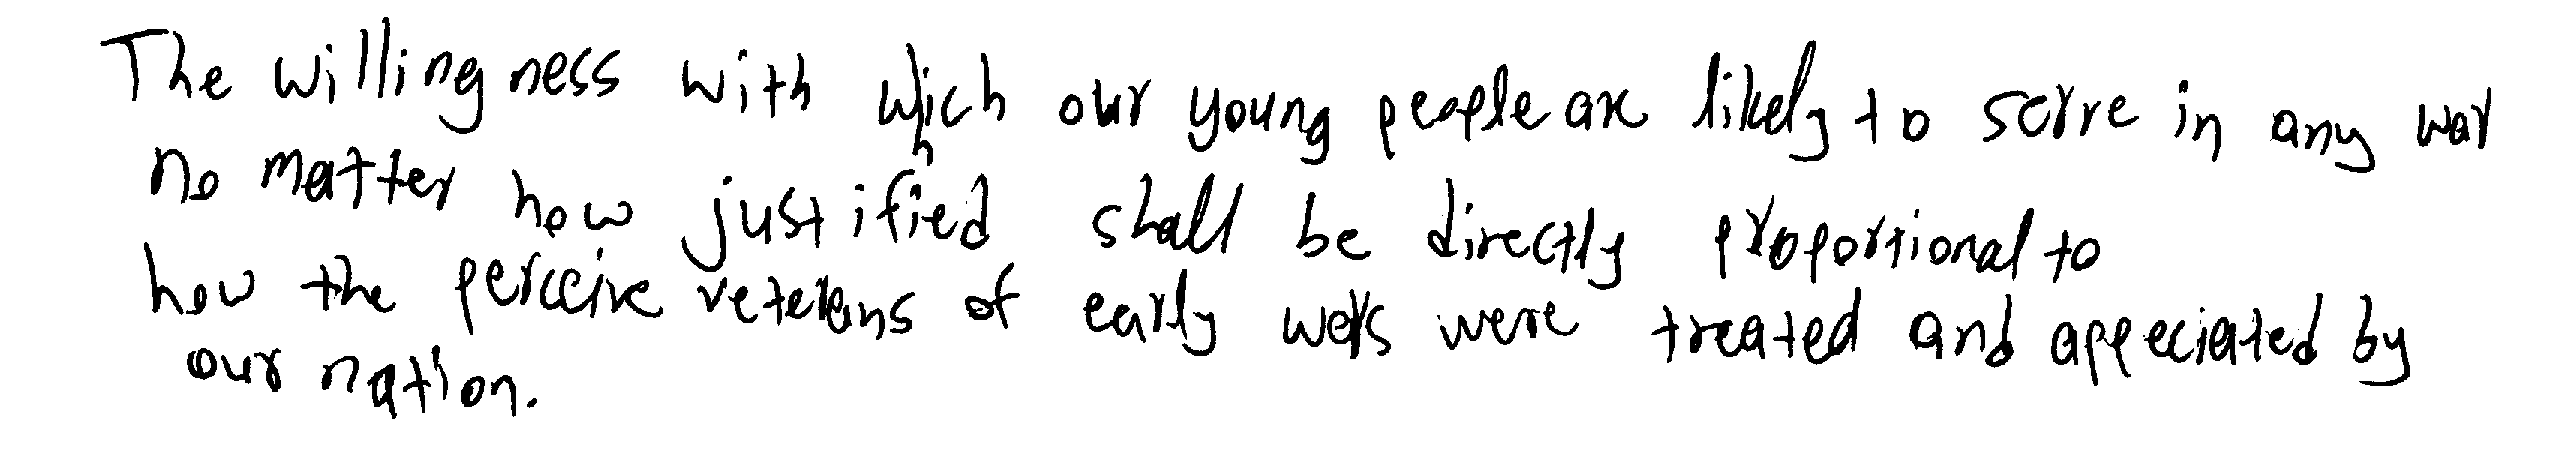 The willingness with which our young people are likely to serve in any war
no matter how justified shall be directly proportional to
how the perceive veterans of early wars were treated and appeciated by
our nation.